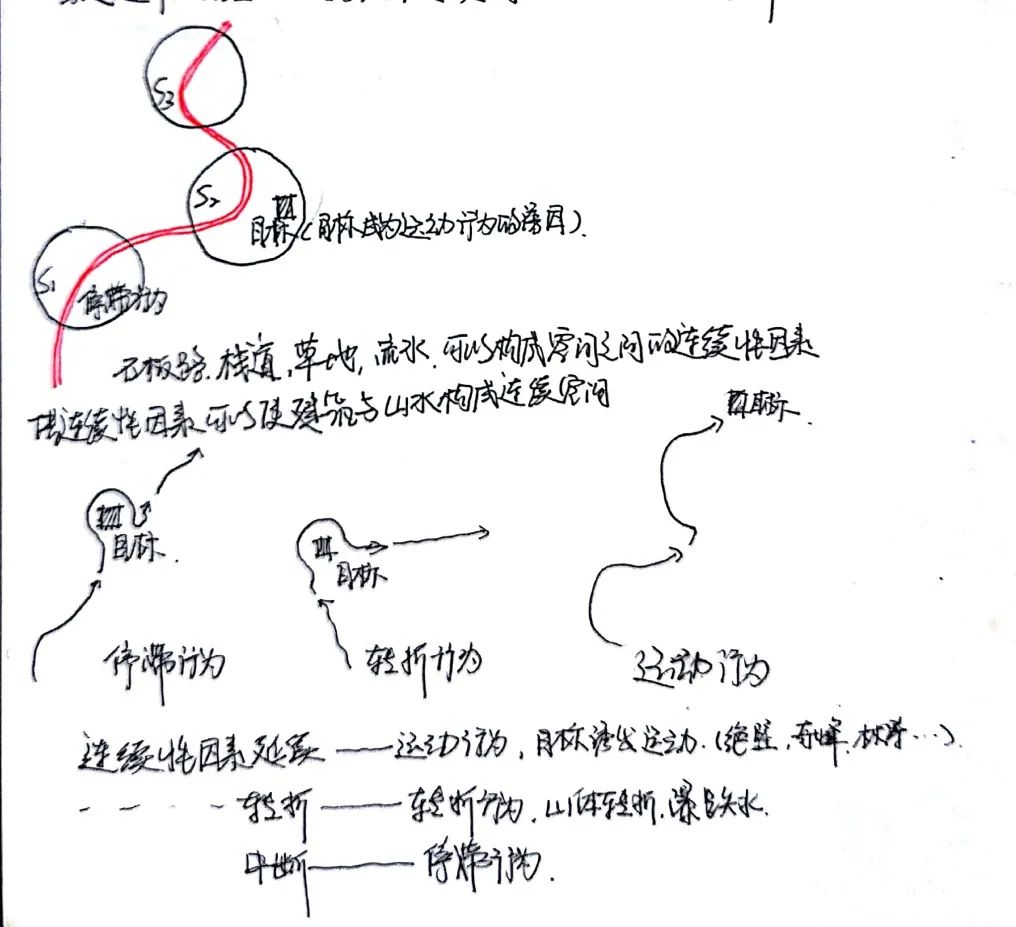 S3
S2
目标(目标成为运动行为的诱因).
S1
停滞行为
石板路.栈道,草地,流水.可以构成空间之间的连续性因素
连续性因素可以使建筑与山水构成连续空间
目标.
目标.
目标
停滞行为
转折行为
运动行为
连续性因素延续——运动行为,目标诱发运动.(绝壁,奇峰,...).
- - - - 转折——转折行为,山体转折,瀑跌水.
中断——停滞行为.